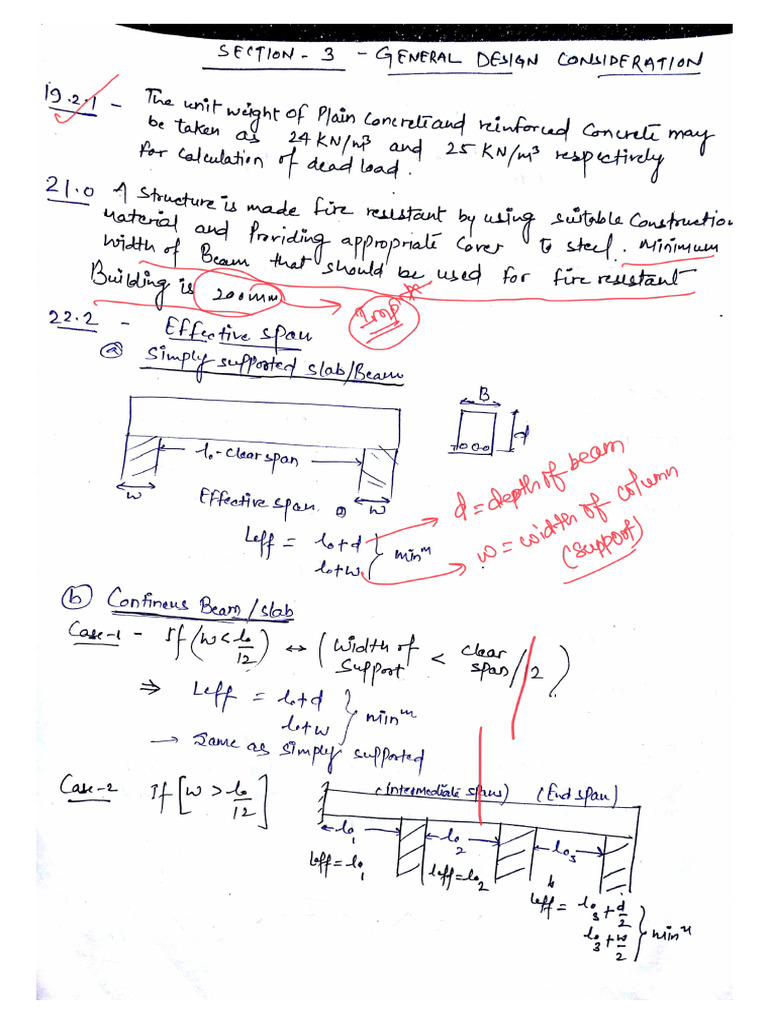 SECTION - 3 - GENERAL DESIGN CONSIDERATION
19.2.1 - The unit weight of Plain Concrete and reinforced Concrete may
be taken as 24 KN/m³ and 25 KN/m³ respectively
for calculation of dead load.
21.0 A Structure is made fire resistant by using suitable Construction
Material and Providing appropriate Cover to steel. Minimum
Width of Beam that should be used for fire resistant
Building is 200mm
Imp
22.2 - Effective span
(a) Simply supported slab/Beam
B
d
l₀ - Clear span
w
w
Effective span.
d = depth of beam
Leff = l₀+d } minᵐ
l₀+w
w = width of column
(support)
(b) Contineus Beam/slab
Case-1 - If (w < l₀/12) ↔ (Width of Support < Clear span/12)
⇒ Leff = l₀+d } minᵐ
l₀+w
→ Same as simply supported
Case-2 If [w > l₀/12]
(Intermediate spans) (End span)
l₀₁ l₀₂ l₀₃
Leff = l₀₁
leff = l₀₂
Leff = l₀₃ + d/2 } minᵐ
l₀₃ + w/2